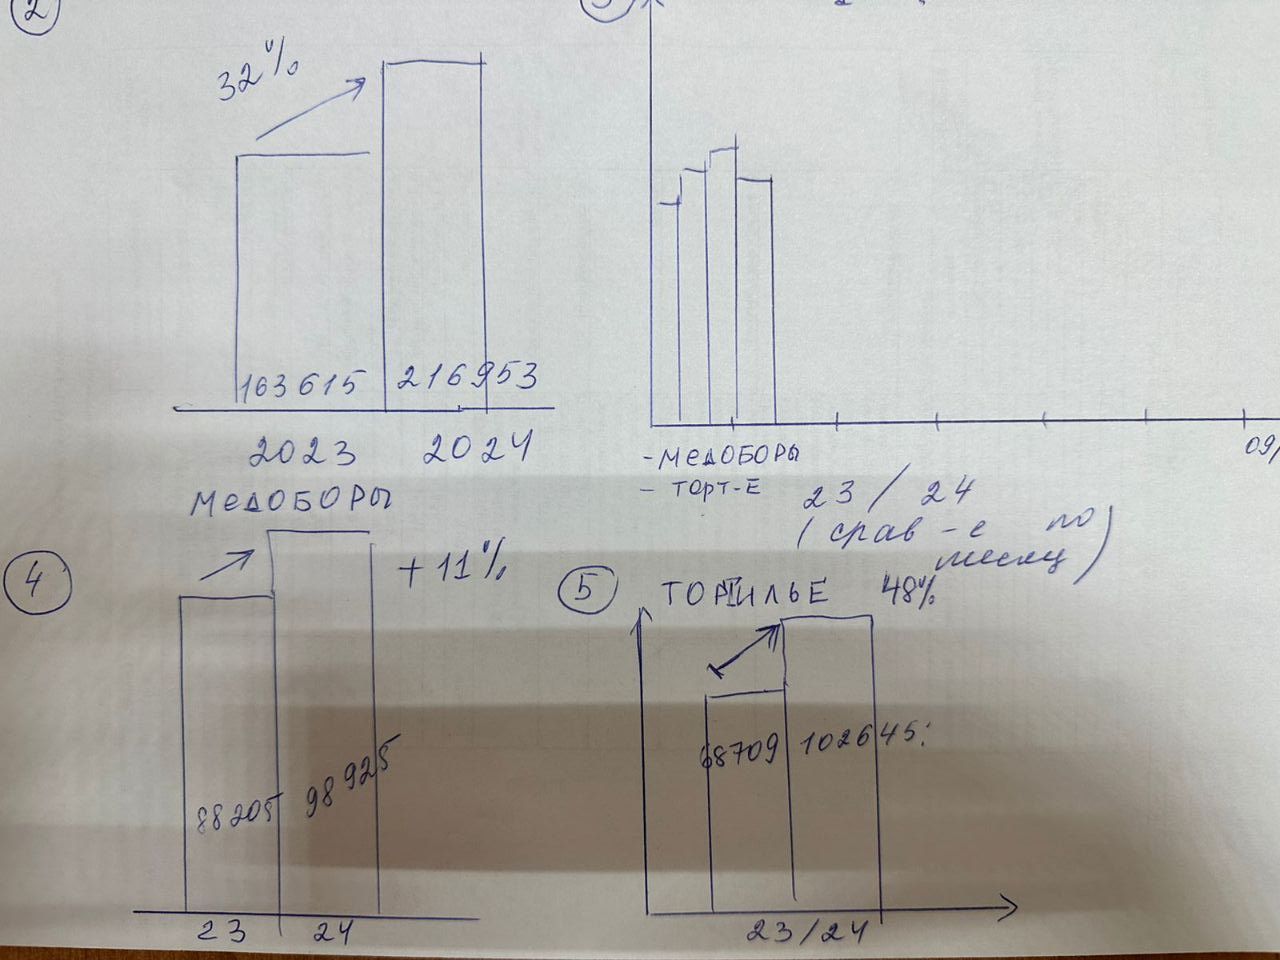 2
32%
163615 216953
2023 2024
3
- МЕДОБОРЫ
- ТОРТ-Е
09/
23 / 24
(срав-е по
месяц)
МЕДОБОРЫ
4
+11%
88205 98925
23 24
5 ТОРТИЛЬЕ 48%
68709 102645:
23/24